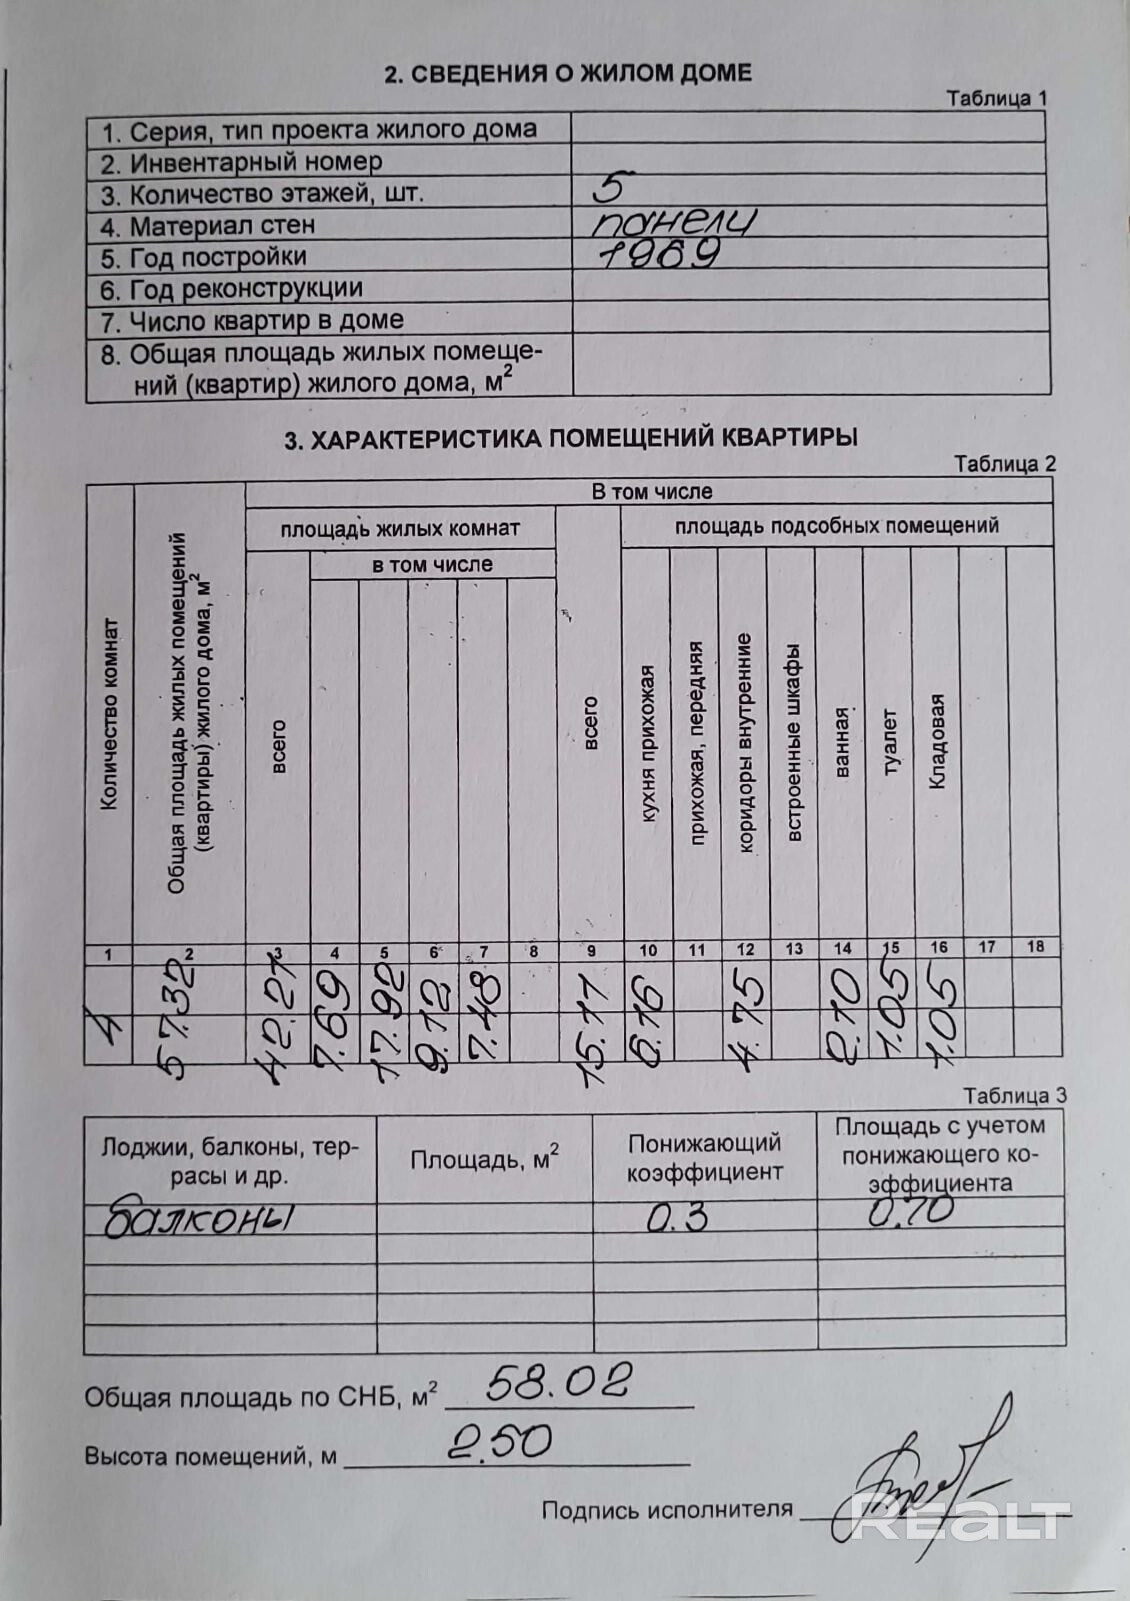 2. СВЕДЕНИЯ О ЖИЛОМ ДОМЕ
Таблица 1
1. Серия, тип проекта жилого дома
2. Инвентарный номер
3. Количество этажей, шт. 5
4. Материал стен панели
5. Год постройки 1969
6. Год реконструкции
7. Число квартир в доме
8. Общая площадь жилых помеще-
ний (квартир) жилого дома, м²
3. ХАРАКТЕРИСТИКА ПОМЕЩЕНИЙ КВАРТИРЫ
Таблица 2
Количество комнат
Общая площадь жилых помещений
(квартиры) жилого дома, м²
В том числе
площадь жилых комнат
в том числе
всего
всего
площадь подсобных помещений
кухня прихожая
прихожая, передняя
коридоры внутренние
встроенные шкафы
ванная
туалет
Кладовая
1 2 3 4 5 6 7 8 9 10 11 12 13 14 15 16 17 18
4 57.32 42.21 7.69 17.92 9.12 7.48 15.11 6.16 4.75 2.10 1.05 1.05
Таблица 3
Лоджии, балконы, тер-
расы и др.
Площадь, м²
Понижающий
коэффициент
Площадь с учетом
понижающего ко-
эффициента
балконы 0.3 0.70
Общая площадь по СНБ, м² 58.02
Высота помещений, м 2.50
Подпись исполнителя
REALT